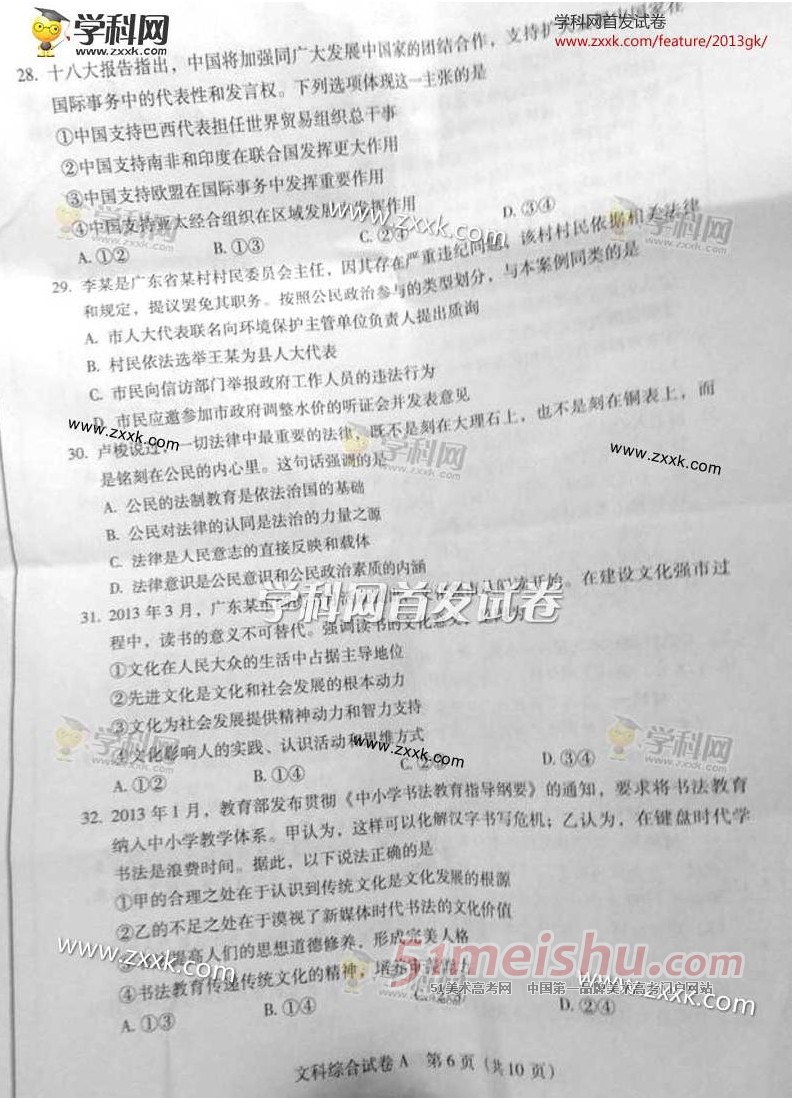 学科网
www.zxxk.com
学科网首发试卷
www.zxxk.com/feature/2013gk/
28. 十八大报告指出，中国将加强同广大发展中国家的团结合作，支持扩大
国际事务中的代表性和发言权。下列选项体现这一主张的是
①中国支持巴西代表担任世界贸易组织总干事
②中国支持南非和印度在联合国发挥更大作用
③中国支持欧盟在国际事务中发挥重要作用
④中国支持亚太经合组织在区域发展中发挥作用
学科网
www.zxxk.com
A. ①② B. ①③ C. ②④ D. ③④
29. 李某是广东省某村村民委员会主任，因其存在严重违纪问题，该村村民依据相关法律
和规定，提议罢免其职务。按照公民政治参与的类型划分，与本案例同类的是
A. 市人大代表联名向环境保护主管单位负责人提出质询
B. 村民依法选举王某为县人大代表
C. 市民向信访部门举报政府工作人员的违法行为
D. 市民应邀参加市政府调整水价的听证会并发表意见
www.zxxk.com
学科网
www.zxxk.com
30. 卢梭说过，一切法律中最重要的法律，既不是刻在大理石上，也不是刻在铜表上，而
是铭刻在公民的内心里。这句话强调的是
A. 公民的法制教育是依法治国的基础
B. 公民对法律的认同是法治的力量之源
C. 法律是人民意志的直接反映和载体
D. 法律意识是公民意识和公民政治素质的内涵
学科网首发试卷
31. 2013 年 3 月，广东某市 开始。在建设文化强市过
程中，读书的意义不可替代。强调读书的文化意义
①文化在人民大众的生活中占据主导地位
②先进文化是文化和社会发展的根本动力
③文化为社会发展提供精神动力和智力支持
④文化影响人的实践、认识活动和思维方式
学科网
www.zxxk.com
www.zxxk.com
学科网
www.zxxk.com
A. ①② B. ①④ C. ②③ D. ③④
32. 2013 年 1 月，教育部发布贯彻《中小学书法教育指导纲要》的通知，要求将书法教育
纳入中小学教学体系。甲认为，这样可以化解汉字书写危机；乙认为，在键盘时代学
书法是浪费时间。据此，以下说法正确的是
①甲的合理之处在于认识到传统文化是文化发展的根源
②乙的不足之处在于漠视了新媒体时代书法的文化价值
提高人们的思想道德修养，形成完美人格
④书法教育传递传统文化的精神，培养审美
www.zxxk.com
51meishu.com
51美术高考网 中国第一品牌美术高考门户网站
www.zxxk.com
A. ①③ B. ①④ C. ②③ D. ②④
文科综合试卷 A 第 6 页（共 10 页）